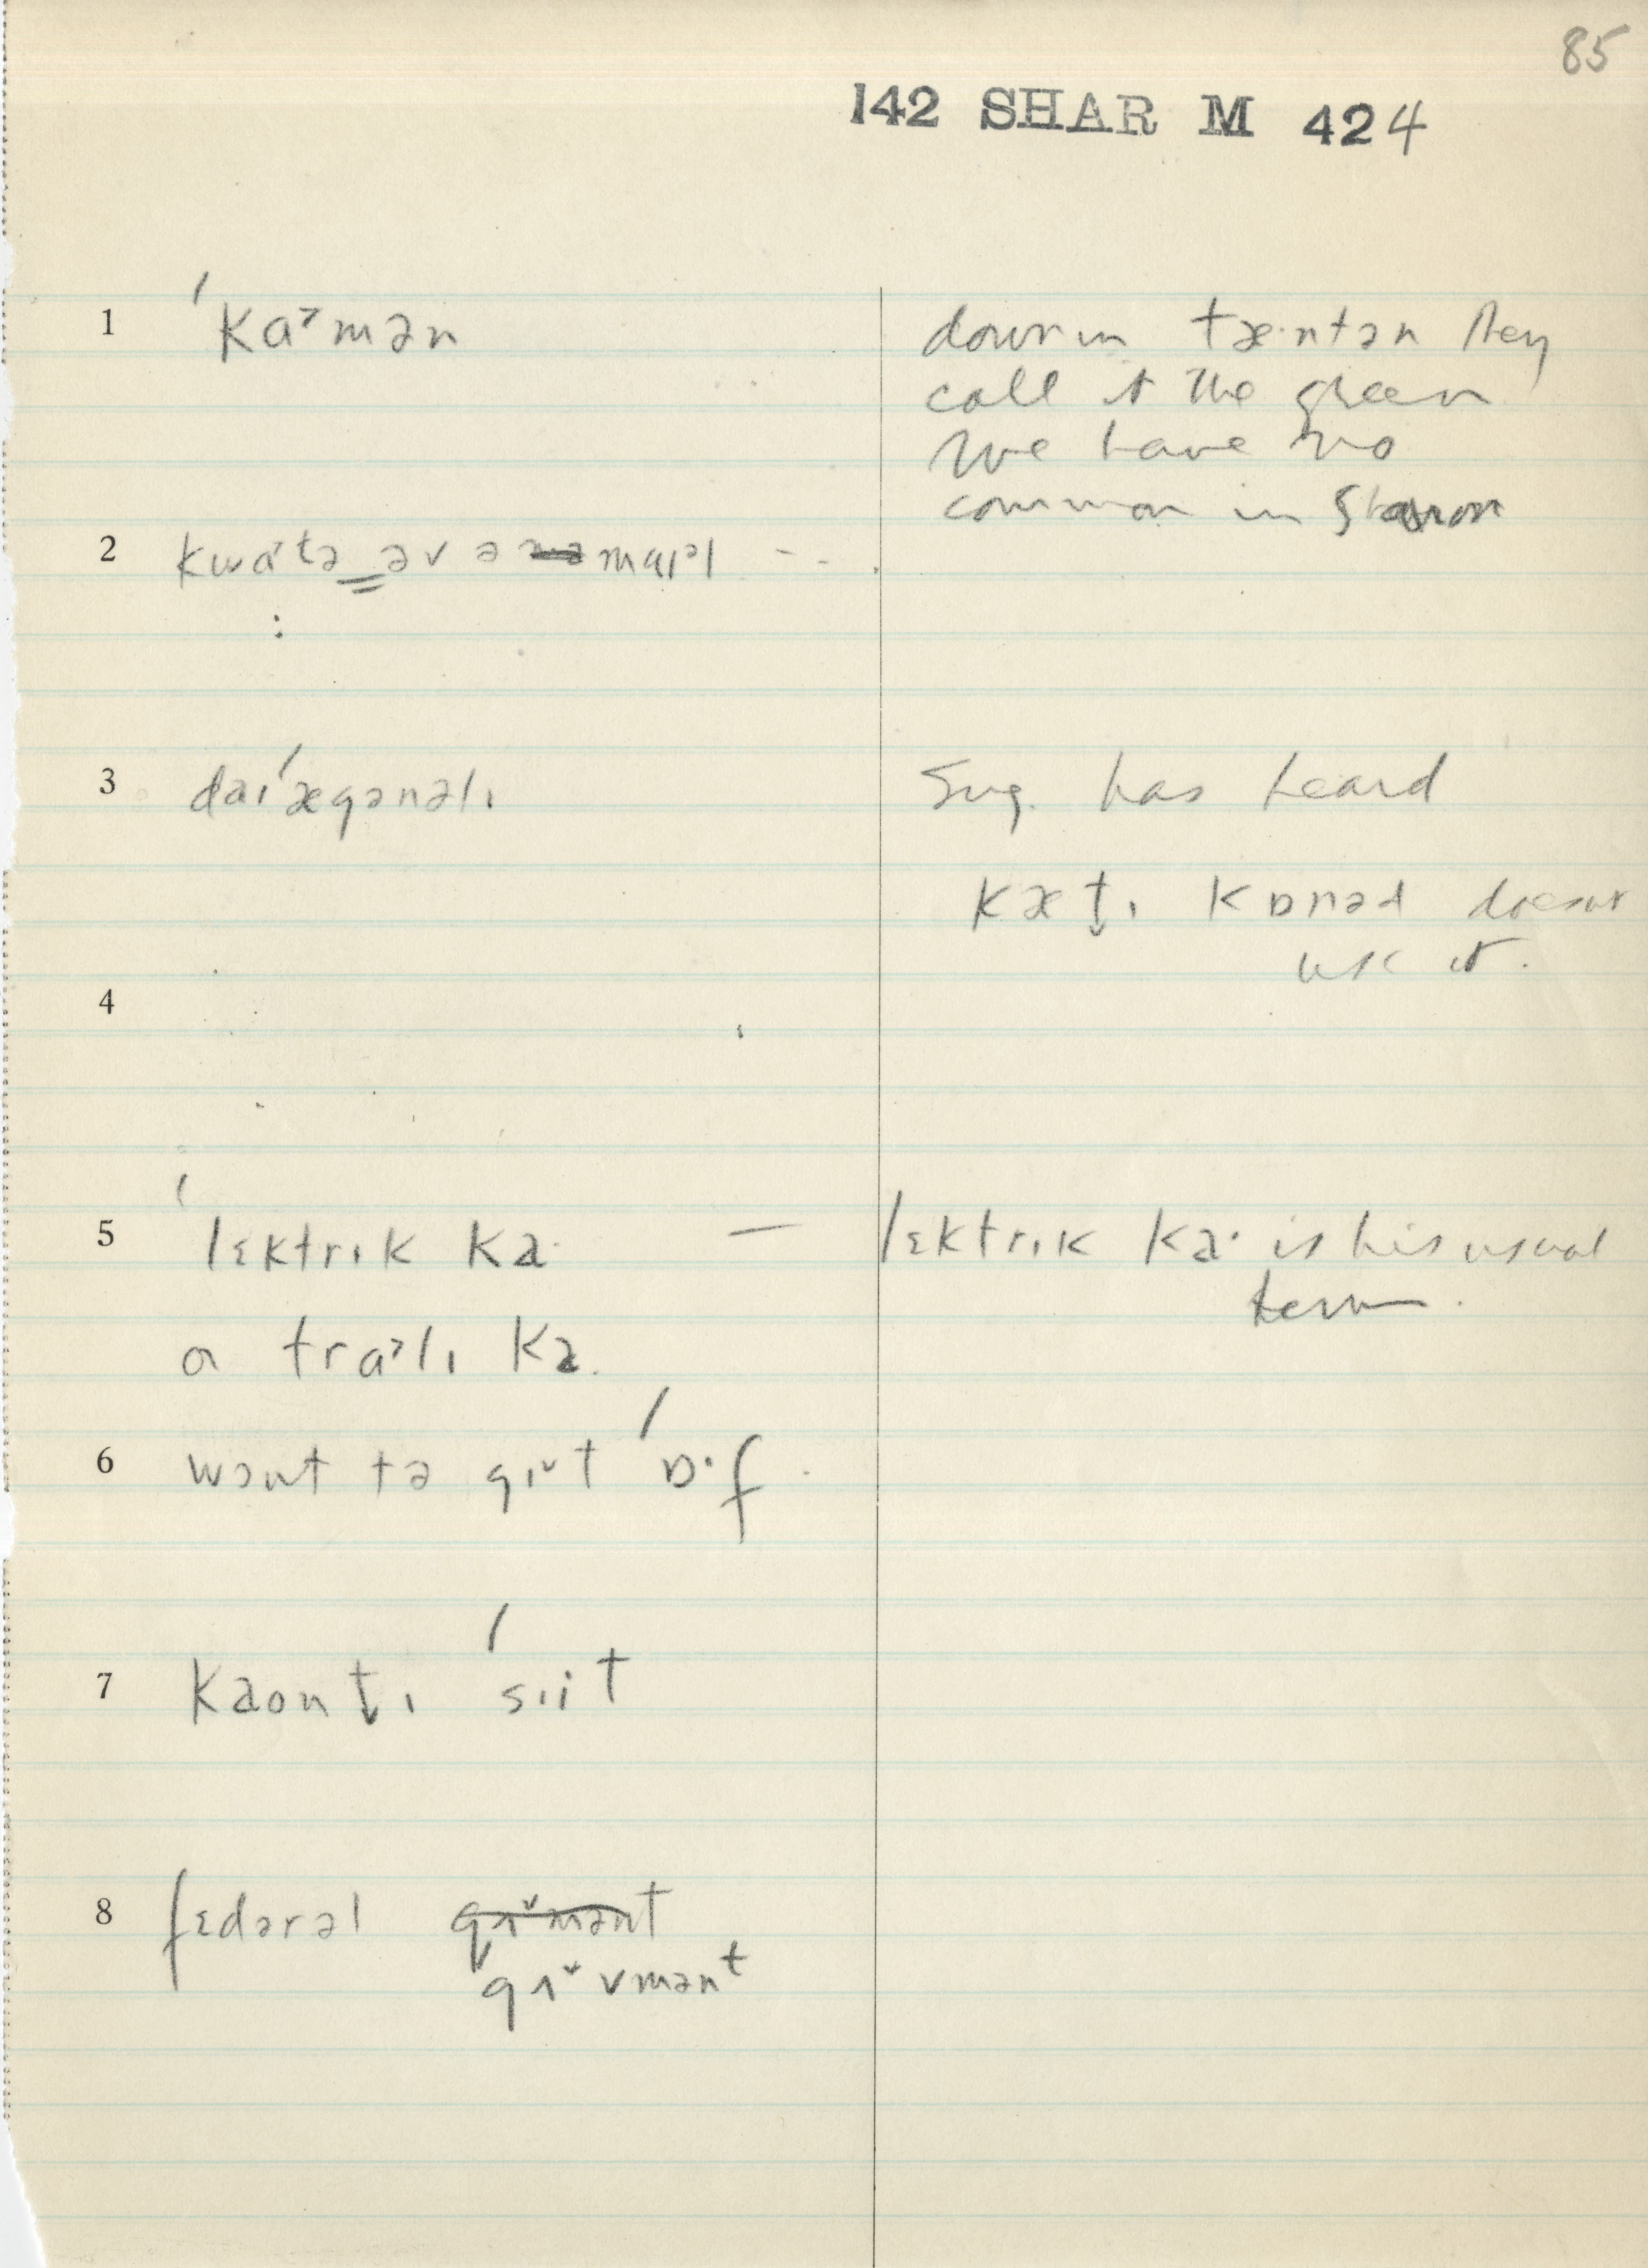 85
142 SHAR M 424
1 ˈka˃mən
down in tæ·ntən they
call it the green
We have no
common in Sharon
2 kwa˃tə‿əv ə maɪəl - -
3 daɪˈægənəlɪ
Sug. has heard
kæt̬ɪ kɒnəd doesnt
use it.
4
5 ˈlɛktrɪk ka· — lɛktrɪk ka· is his usual
term.
a tra˃lɪ ka·
6 wɔnt tə gɪ˅t ˈɒ·f
7 kaont̬ɪ ˈsɪit
8 fɛdərəl gʌ˅mənt
gʌ˅vmənt